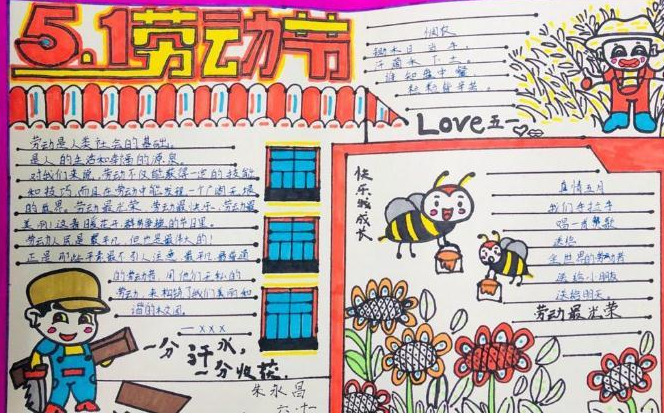 5.1劳动节
悯农
锄禾日当午，
汗滴禾下土。
谁知盘中餐，
粒粒皆辛苦。
Love五一
劳动是人类社会的基础，
是人的生活和幸福的源泉。
对我们来说，劳动不仅能获得一定的技能
和技巧，而且在劳动中能发现一个广阔无垠
的世界。劳动最光荣、劳动最快乐、劳动最
美丽！这春暖花开
的节日里。
劳动人民是最平凡，但也是最伟大的！
正是那些平素最不引人注意，最平凡最普通
的劳动者，用他们无私的
劳动，来构筑了我们美丽和
谐的校园。
—xxx
一分汗水，
一分收获
朱永昌
六.十一
快乐的成长
真情五月
我们手拉手
唱一首赞歌
送给
全世界的劳动者
送给小朋友
送给明天。
劳动最光荣